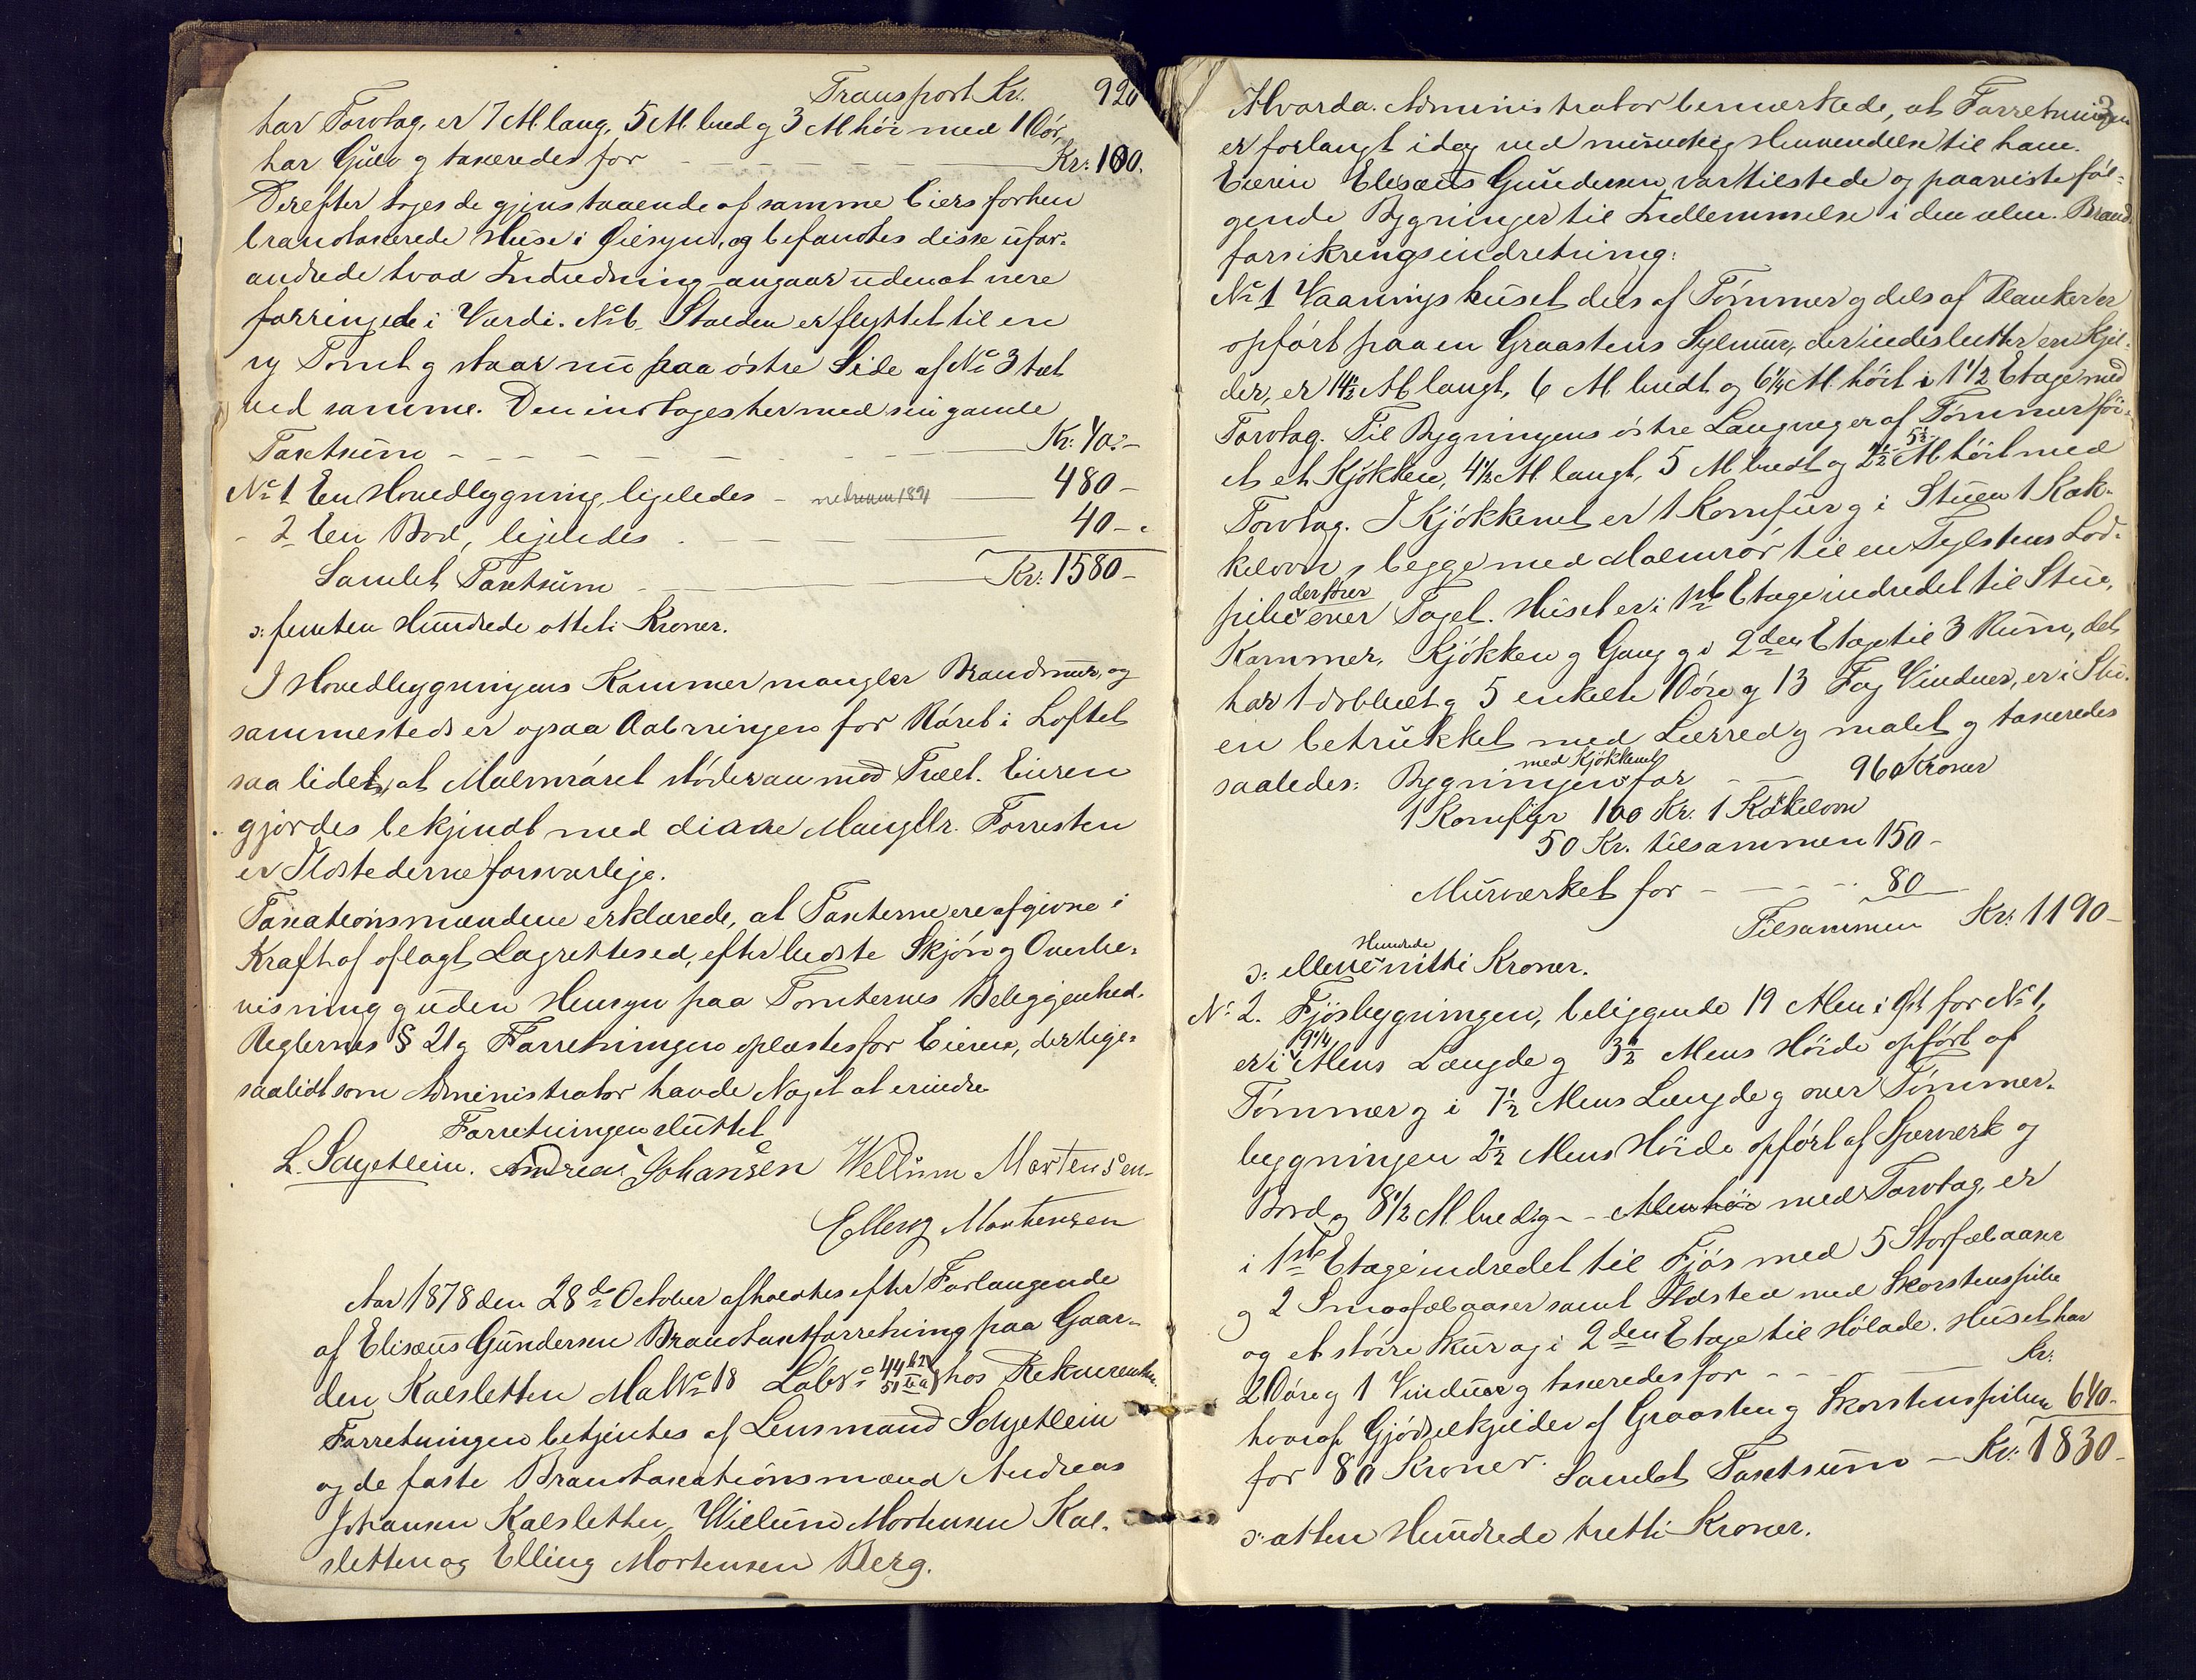 Transport Kr. 920
har Torvtag, er 7 Al. lang, 5 Al. bred og 3 Al. høi med 1 Dør,
har Gulv og taxeredes for — — — Kr: 100.
Derefter toges de gjenstaaende af samme Eiers forhen
brandtaxerede Huse i Øiesyn, og befandtes disse ufor-
andrede hvad Indredning angaar uden at være
forringede i Værdi. No 6 Stalden er flyttet til en
ny Tomt og staar nu paa østre Side af No 3 tæt
ved samme. Den indtages her med sin gamle
Taxtsum — — — Kr: 40.-
No 1 En Hovedbygning, ligeledes - 480 -
- 2 En Bod, ligeledes . — — 40 - .
Samlet Taxtsum — Kr: 1580 -
ɔ: femten Hundrede otteti Kroner.
I Hovedbygningens Kammer mangler Brandmur, og
sammesteds er ogsaa Aabningen for Røret i Loftet
saa lidet, at Malmrøret støder an mod Træet. Eieren
gjordes bekjendt med disse Mangler. Forresten
er Ildstederne forsvarlige.
Taxationsmændene erklærede, at Taxterne ere afgivne i
Kraft af aflagt Lagrettesed, efter bedste Skjøn og Overbe-
visning og uden Hensyn paa Tomternes Beliggenhed.
Reglernes § 21 og Forretningen oplæstes for Eieren, der lige-
saalidt som Administrator havde Noget at erindre
Forretningen sluttet
L. Schjetlein. Andreas Johansen Wellum Mortensen
Elling Mortensen
Aar 1878 den 28de October afholdtes efter Forlangende
af Elisæus Gundersen Brandtaxtforretning paa Gaar-
den Kalsletten Mat No 18 Løbe No 44 b2 51 b a hos Rekvirenten.
Forretningen betjentes af Lensmand Schjetlein
og de faste Brandtaxationsmænd Andreas
Johansen Kalsletten, Willum Mortensen Kal-
sletten og Elling Mortensen Berg.
3
Hvorda. Administrator bemærkede, at Forretningen
er forlangt idag ved mundtlig Henvendelse til ham.
Eieren Elisæus Gundersen, var tilstede og paaviste føl-
gende Bygninger til Indlemmelse i den alm. Brand
forsikringsindretning:
No 1 Vaaningshuset dels af Tømmer og dels af Planker er
opført paa en Graastens Sylmur, der indeslutter en Kjel-
der, er 14 1/2 Al. langt, 6 Al. bredt og 6 1/4 Al. høit i 1 1/2 Etage med
Torvtag. Til Bygningens østre Langvæg er af Tømmer föi-
et et Kjøkken, 4 1/2 Al. langt, 5 Al. bredt og 5 1/2 Al høit med
Torvtag. I Kjøkkenet er 1 Komfur og i Stuen 1 Kak-
kelovn, begge med Malmrør til en Teglstens Lod-
pibe der fører over Taget. Huset er i 1ste Etage indredet til Stue,
Kammer, Kjøkken og Gang og i 2den Etage til 3 Rum, det
har 1 dobbelt og 5 enkelte Døre og 13 Fag Vinduer, er i Stu-
en betrukket med Lærred og malet og taxeredes
saaledes: Bygningen med Kjøkkenet for — — 960 Kroner
1 Komfyr 100 Kr. 1 Kakelovn
50 Kr. tilsammen 150 -
Murværket for - — — 80
Tilsammen Kr: 1190 -
ɔ: elleve Hundrede nitti Kroner.
No 2. Fjøsbygningen, beliggende 19 Alen i Øst for No 1,
er i 9 1/4 Alens Længde og 3 1/2 Alens Høide opført af
Tømmer og i 7 1/2 Alens Længde og over Tømmer-
bygningen 2 1/2 Alens Høide opført af Sperværk og
Bord, og 8 1/2 Al bred og - - Alen høi med Torvtag, er
i 1ste Etage indredet til Fjøs med 5 Storfæbaaser
og 2 Smaafæbaaser samt Ildsted med Skorstenspibe
og et større Skur og i 2den Etage til Hølade. Huset har
2 Døre og 1 Vindue og taxeredes for — — Kr.
hvoraf Gjødselkjelder af Graasten og Skorstenspiben 640 -
for 80 Kroner. Samlet Taxtsum — Kr: 1830 -
ɔ: atten Hundrede tretti Kroner.